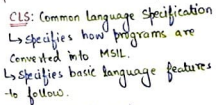 CLS: Common Language Specification
↳ Specifies how programs are
Converted into MSIL.
↳ Specifies basic language features
to follow.